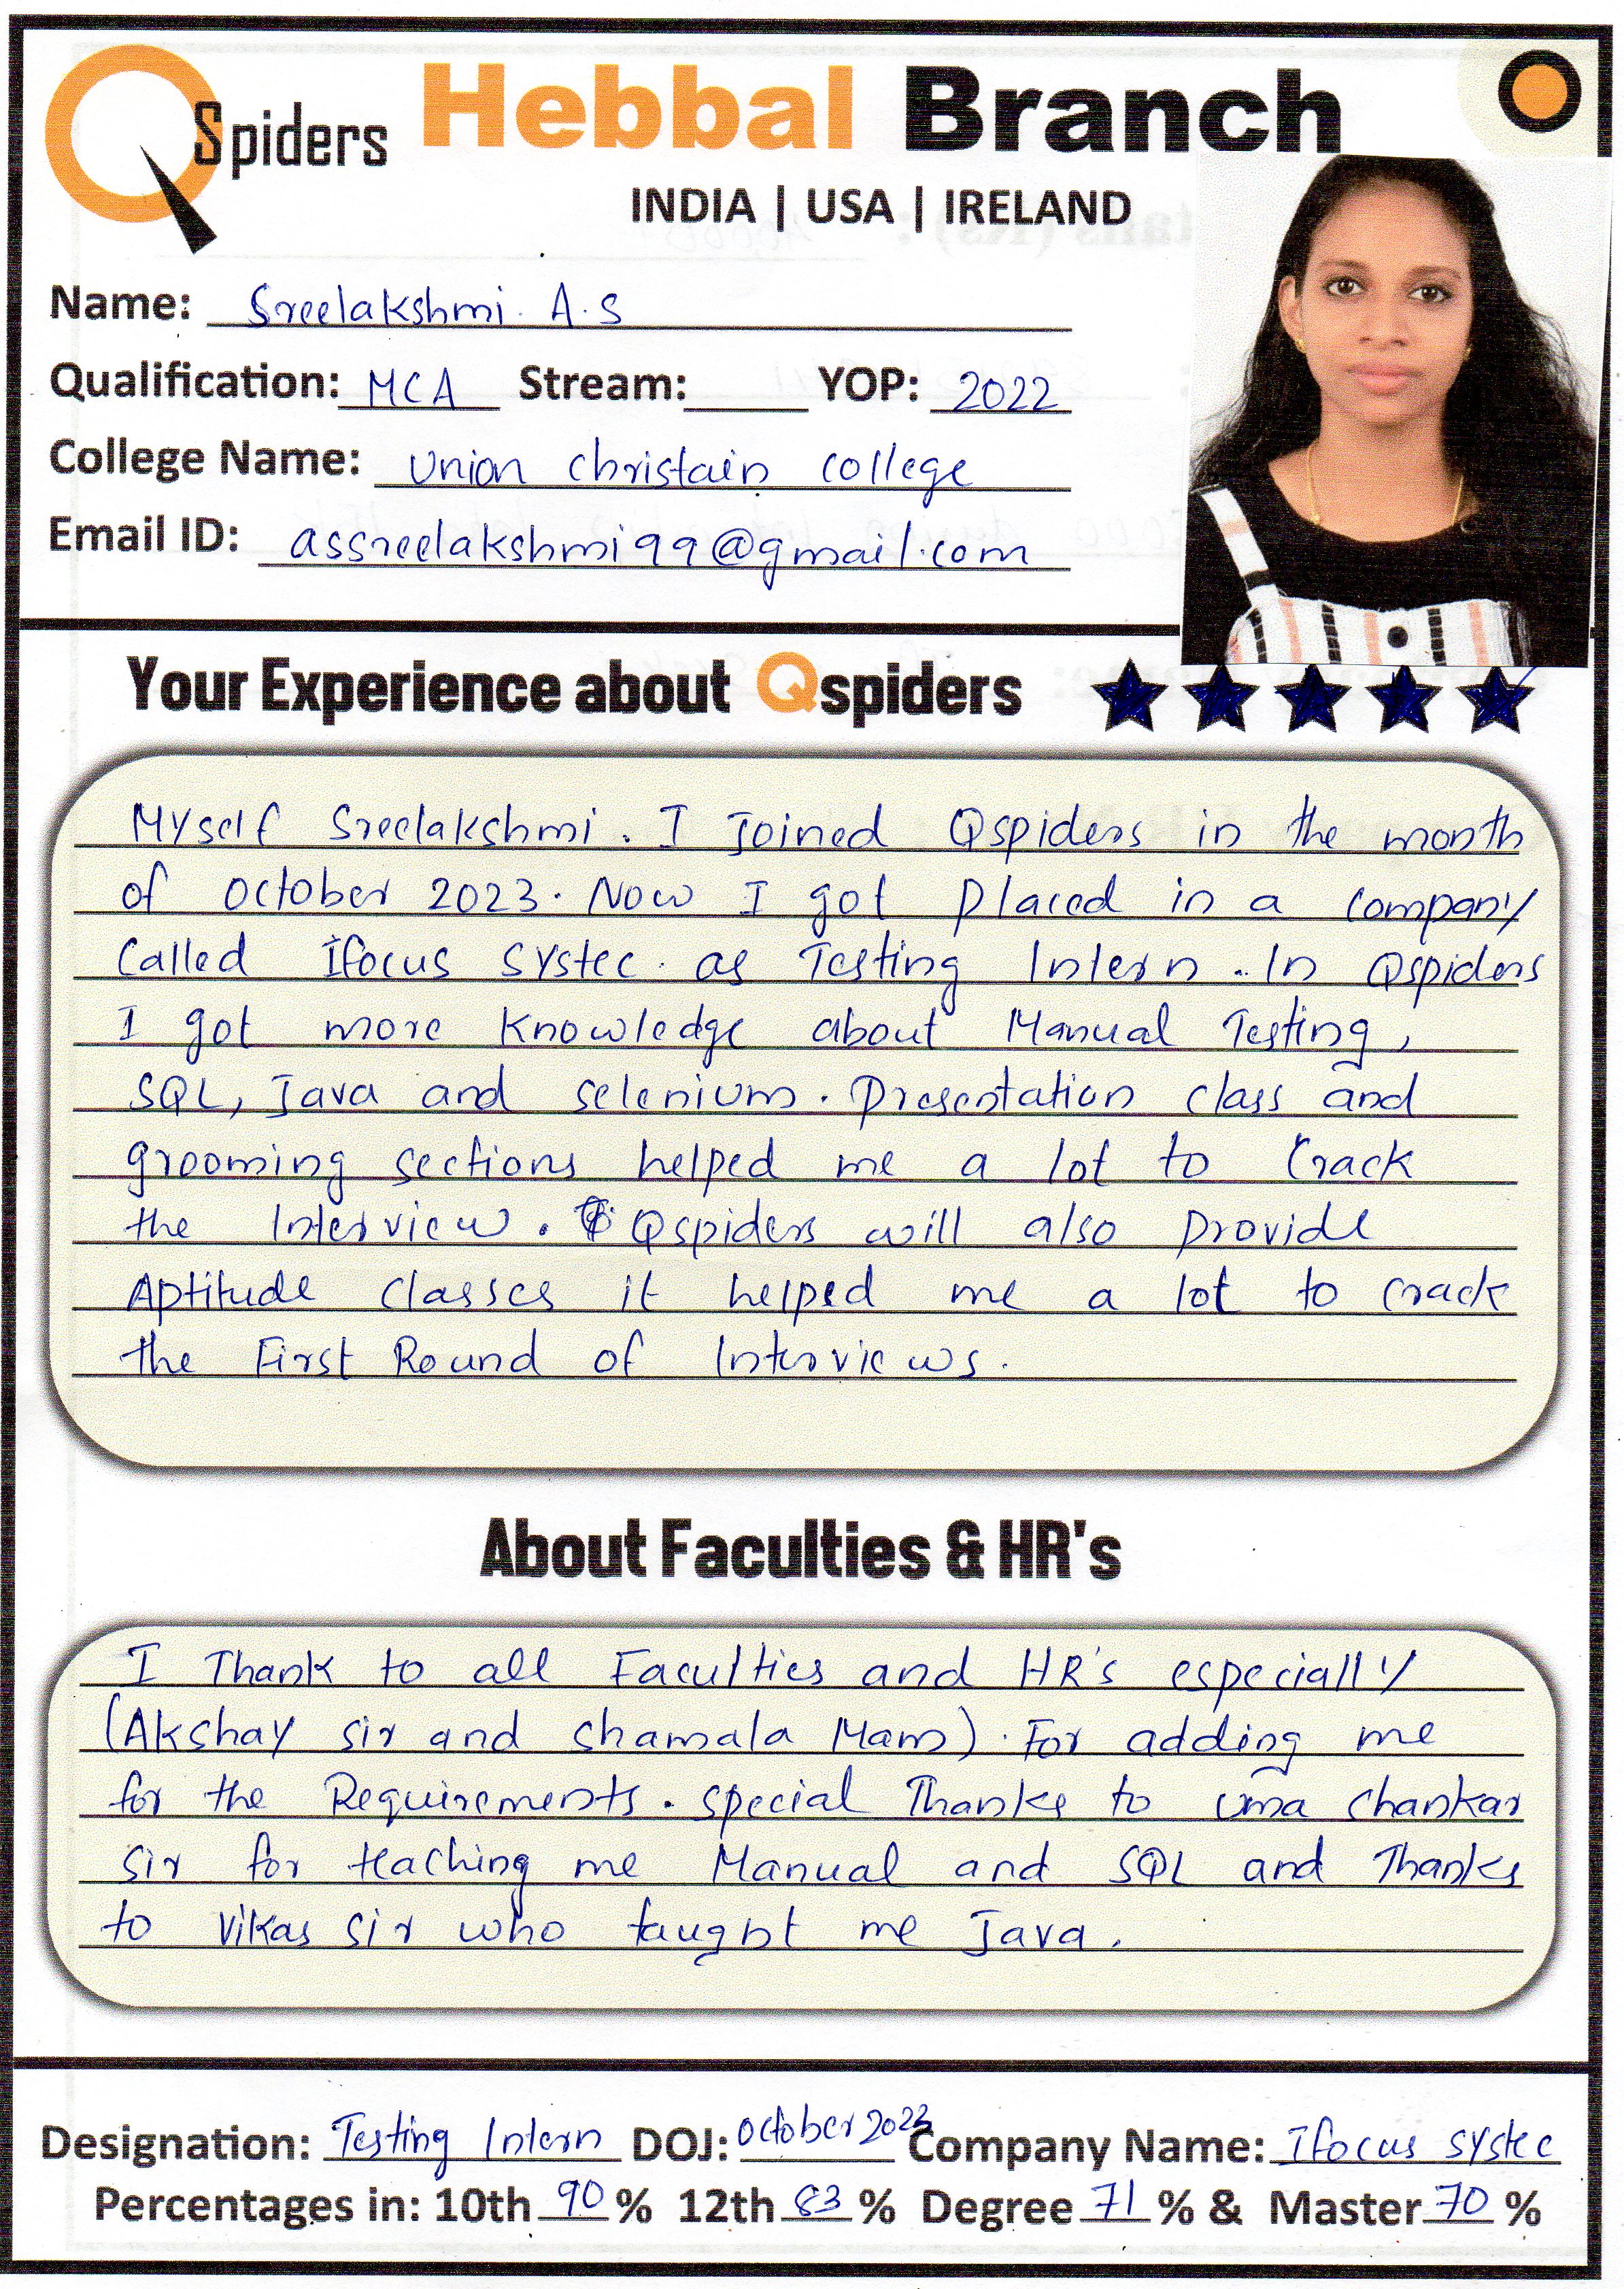 QSpiders Hebbal Branch
INDIA | USA | IRELAND
Name: Sreelakshmi. A.S
Qualification: MCA Stream: YOP: 2022
College Name: Union christain college
Email ID: assreelakshmi99@gmail.com
Your Experience about Qspiders
Myself Sreelakshmi. I Joined Qspiders in the month
of October 2023. Now I got placed in a company
Called Ifocus Systec. as Testing Intern. In Qspiders
I got more Knowledge about Manual Testing,
SQL, Java and selenium. Presentation class and
grooming sections helped me a lot to Crack
the Interview. Qspiders will also Provide
Aptitude classes it helped me a lot to crack
the First Round of Interviews.
About Faculties & HR's
I Thank to all Faculties and HR's especially
(Akshay sir and Shamala Mam). For adding me
for the Requirements. special Thanks to uma Shankar
Sir for teaching me Manual and SQL and Thanks
to Vikas Sir who taught me Java.
Designation: Testing Intern DOJ: October 2023 Company Name: Ifocus systec
Percentages in: 10th 90 % 12th 83 % Degree 71 % & Master 70 %